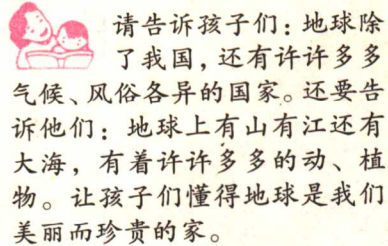 请告诉孩子们：地球除
了我国，还有许许多多
气候、风俗各异的国家。还要告
诉他们：地球上有山有江还有
大海，有着许许多多的动、植
物。让孩子们懂得地球是我们
美丽而珍贵的家。